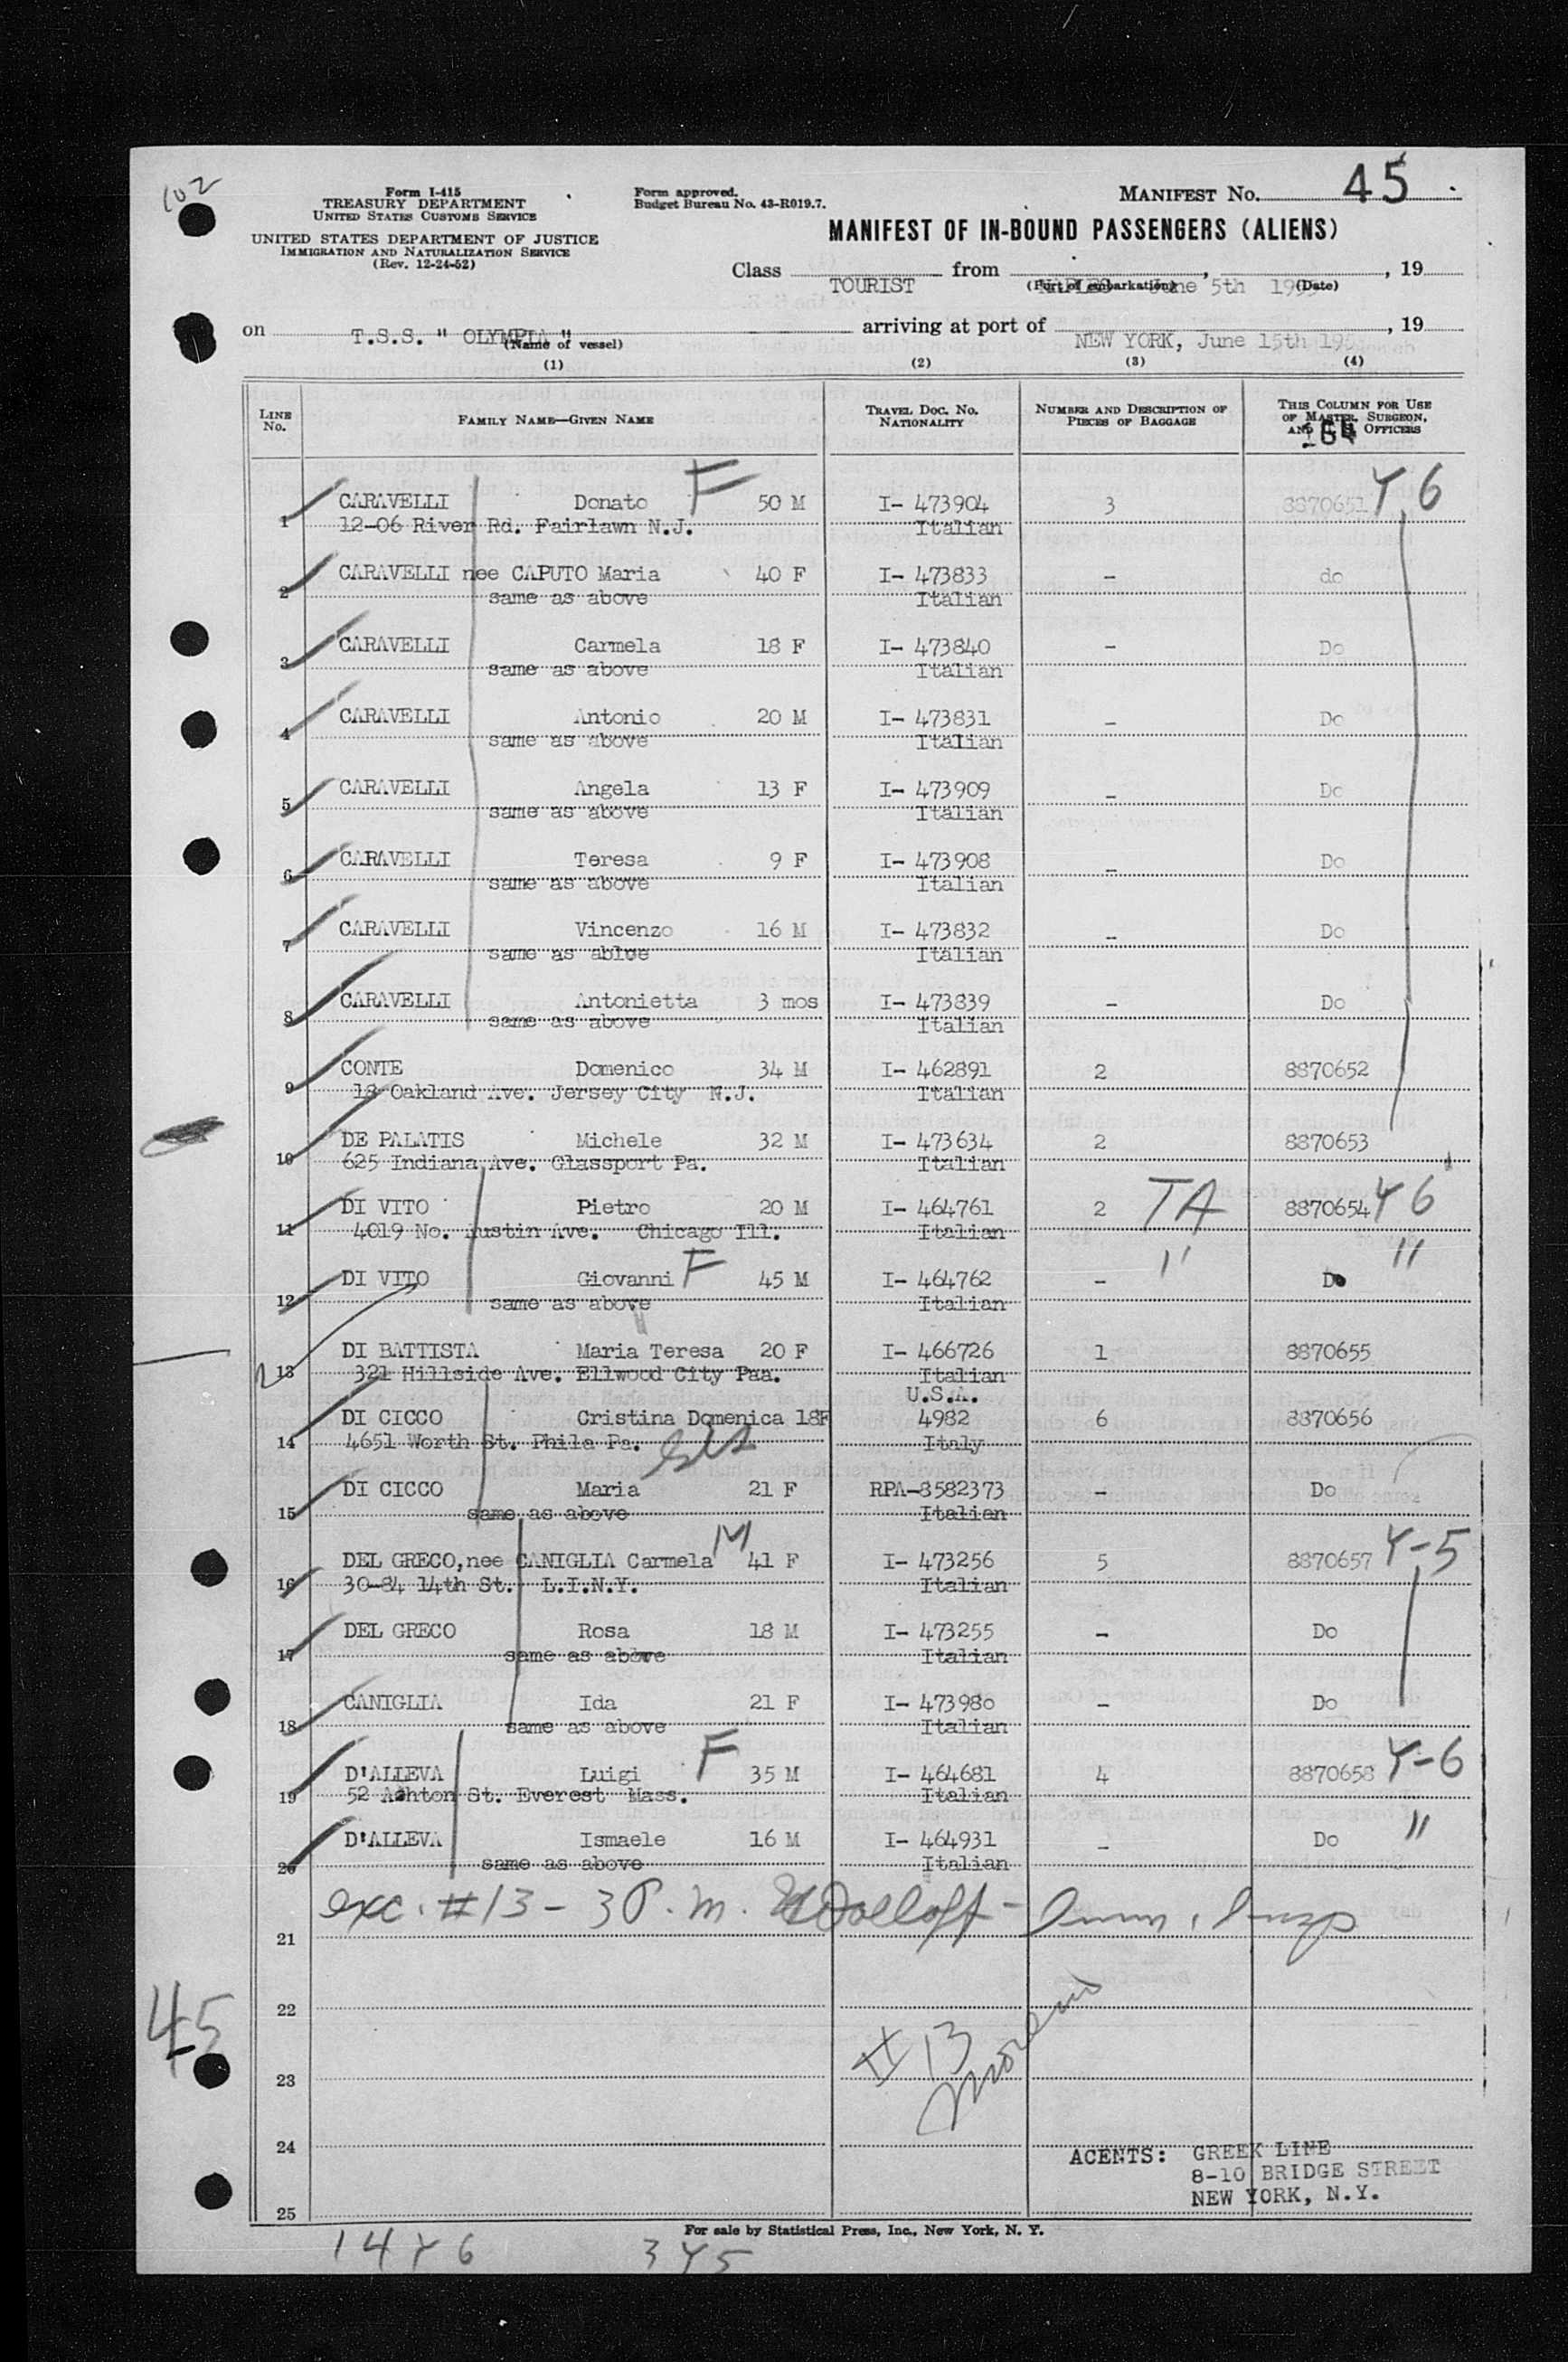 102
Form I-415
TREASURY DEPARTMENT
UNITED STATES CUSTOMS SERVICE
UNITED STATES DEPARTMENT OF JUSTICE
IMMIGRATION AND NATURALIZATION SERVICE
(Rev. 12-24-52)
Form approved.
Budget Bureau No. 43-R019.7.
MANIFEST NO. 45
MANIFEST OF IN-BOUND PASSENGERS (ALIENS)
Class TOURIST from (Port of embarkation), June 5th (Date), 19
on T.S.S. " OLYMPIA " (Name of vessel) arriving at port of NEW YORK, June 15th 195 , 19
(1) (2) (3) (4)
LINE No. FAMILY NAME—GIVEN NAME TRAVEL DOC. NO. NATIONALITY NUMBER AND DESCRIPTION OF PIECES OF BAGGAGE THIS COLUMN FOR USE OF MASTER, SURGEON, AND OFFICERS
1 CARAVELLI Donato F 50 M I- 473904 3 8870651 Y 6
12-06 River Rd. Fairlawn N.J. Italian
2 CARAVELLI nee CAPUTO Maria 40 F I- 473833 - do
same as above Italian
3 CARAVELLI Carmela 18 F I- 473840 - Do
same as above Italian
4 CARAVELLI Antonio 20 M I- 473831 - Do
same as above Italian
5 CARAVELLI Angela 13 F I- 473909 - Do
same as above Italian
6 CARAVELLI Teresa 9 F I- 473908 - Do
same as above Italian
7 CARAVELLI Vincenzo 16 M I- 473832 - Do
same as ablve Italian
8 CARAVELLI Antonietta 3 mos I- 473839 - Do
same as above Italian
9 CONTE Domenico 34 M I- 462891 2 8870652
18 Oakland Ave. Jersey City N.J. Italian
10 DE PALATIS Michele 32 M I- 473634 2 8870653
625 Indiana Ave. Glassport Pa. Italian
11 DI VITO Pietro 20 M I- 464761 2 TA 8870654 Y 6
4019 No. Austin Ave. Chicago Ill. Italian
12 DI VITO Giovanni F 45 M I- 464762 - " Do "
same as above Italian
13 DI BATTISTA Maria Teresa 20 F I- 466726 1 8870655
321 Hillside Ave. Ellwood City Paa. Italian
U.S.A.
14 DI CICCO Cristina Domenica 18F 4982 6 8870656
4651 Worth St. Phila Pa. Italy
15 DI CICCO Maria 21 F RPA-8582373 - Do
same as above Italian
16 DEL GRECO, nee CANIGLIA Carmela M 41 F I- 473256 5 8870657 Y-5
30-84 14th St. L.I.N.Y. Italian
17 DEL GRECO Rosa 18 M I- 473255 - Do
same as above Italian
18 CANIGLIA Ida 21 F I- 473980 - Do
same as above Italian
19 D'ALLEVA Luigi F 35 M I- 464681 4 8870658 Y-6
52 Ashton St. Everest Mass. Italian
20 D'ALLEVA Ismaele 16 M I- 464931 - Do "
same as above Italian
exc. #13 - 3 P.m.
21
22
45
#13
23
24
25
ACENTS: GREEK LINE
8-10 BRIDGE STREET
NEW YORK, N.Y.
For sale by Statistical Press, Inc., New York, N. Y.
14 Y 6 3 Y 5